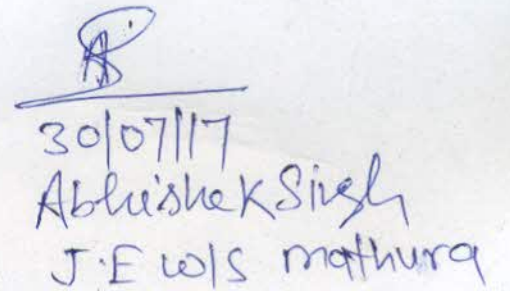 30/07/17
Abhishek Singh
J.E W/S mathura